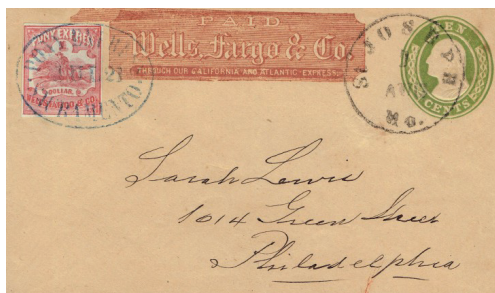 PAID
Wells, Fargo & Co.
THROUGH OUR CALIFORNIA AND ATLANTIC EXPRESS
PONY EXPRESS
DOLLAR
WELLS, FARGO & CO.
PONY EXPRESS
SACRAMENTO.
ST JOSEPH
MO.
TEN
CENTS
Sarah Lewis
1014 Green Street
Philadelphia